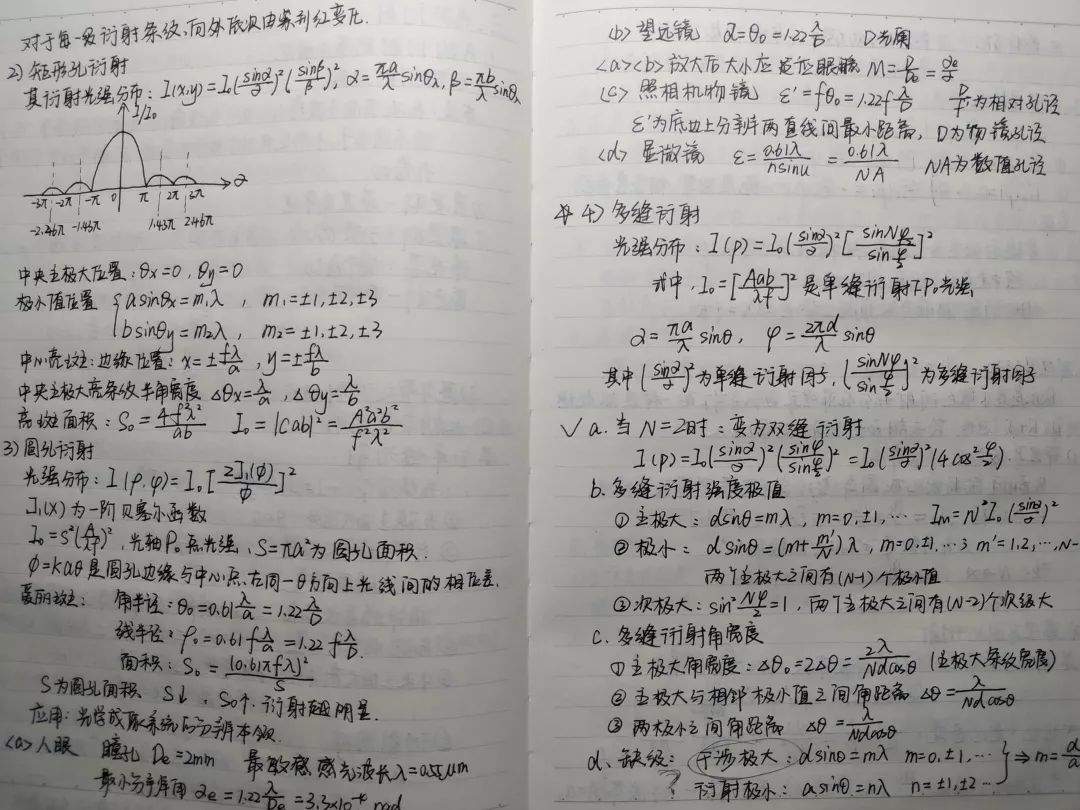 对于每一级衍射条纹，向外依次由紫到红变化.
2) 矩形孔衍射
其衍射光强分布: I(x,y)=I₀(sinα/α)²(sinβ/β)², α=πa/λ sinθx, β=πb/λ sinθ
I/I₀
α
-3π -2π -π 0 π 2π 3π
-2.46π -1.43π 1.43π 2.46π
中央主极大位置: θx=0, θy=0
极小值位置 { asinθx=m₁λ, m₁=±1,±2,±3
bsinθy=m₂λ, m₂=±1,±2,±3
中心亮斑: 边缘位置: x=±fλ/a, y=±fλ/b
中央主极大亮条纹半角宽度 Δθx=λ/a, Δθy=λ/b
亮斑面积: S₀=4f²λ²/ab I₀=|Cab|²=A²a²b²/f²λ²
3) 圆孔衍射
光强分布: I(ρ,φ)=I₀[2J₁(φ)/φ]²
J₁(x)为一阶贝塞尔函数
I₀=S²(A/λf)², 光轴P₀点光强, S=πa²为圆孔面积.
Φ=kaθ是圆孔边缘与中心点在同一θ方向上光线间的相位差.
爱丽斑: 角半径: θ₀=0.61λ/a=1.22λ/D
线半径: ρ₀=0.61fλ/a=1.22fλ/D.
面积: S₀=(0.61πfλ)²/S
S为圆孔面积 S↓, S₀↑, 衍射越明显.
应用: 光学成像系统的分辨本领.
<a>人眼 瞳孔 De=2mm 最敏感感光波长λ=0.55μm
最小分辨角 αe=1.22λ/De=3.3×10⁻⁴ rad
<b> 望远镜 α=θ₀=1.22λ/D D为
<a><b>放大后大小应适应眼睛 M=D/De=αe/α
<c> 照相机物镜 ε'=fθ₀=1.22fλ/D D/f为相对孔径
ε'为底边上分辨两直线间最小距离, D为物镜孔径
<d> 显微镜 ε=0.61λ/nsinu=0.61λ/NA NA为数值孔径
4) 多缝衍射
光强分布: I(p)=I₀(sinα/α)²[sinNφ/2/sinφ/2]²
式中, I₀=[Aab/λf]²是单缝衍射下P₀光强
α=πa/λ sinθ, φ=2πd/λ sinθ
其中(sinα/α)²为单缝衍射因子, (sinNφ/2/sinφ/2)²为多缝衍射因子
✓ a. 当N=2时: 变为双缝衍射
I(p)=I₀(sinα/α)²(sinφ/sinφ/2)²=I₀(sinα/α)²(4cos²φ/2).
b. 多缝衍射强度极值
① 主极大: dsinθ=mλ, m=0,±1,⋯ Im=N²I₀(sinα/α)²
② 极小: dsinθ=(m+m'/N)λ, m=0,±1,⋯; m'=1,2,⋯,N-
两个主极大之间有(N-1)个极小值
③ 次极大: sin²Nφ/2=1, 两个主极大之间有(N-2)个次级大
c. 多缝衍射角宽度
① 主极大角宽度: Δθ₀=2Δθ=2λ/Ndcosθ (主极大条纹宽度)
② 主极大与相邻极小值之间角距离 Δθ=λ/Ndcosθ
③ 两极小之间角距离 Δθ=λ/Ndcosθ
d. 缺级: 干涉极大: dsinθ=mλ m=0,±1,⋯ } ⇒ m=d/a
? 衍射极小: asinθ=nλ n=±1,±2⋯